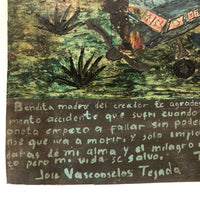 Bendita madre del creador te agradez
mento accidente que sufri cuando
oneta empezo a fallar sin poder
nse que iva a morir y solo implo
daras de mi alma y el milagro
zo pero mi vida se salvo.
José Vasconselos Tejada